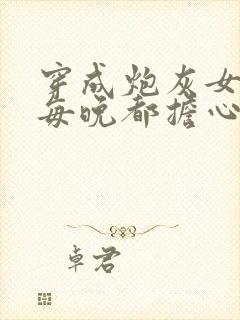 穿成炮灰女
每晚都擔心
卓君